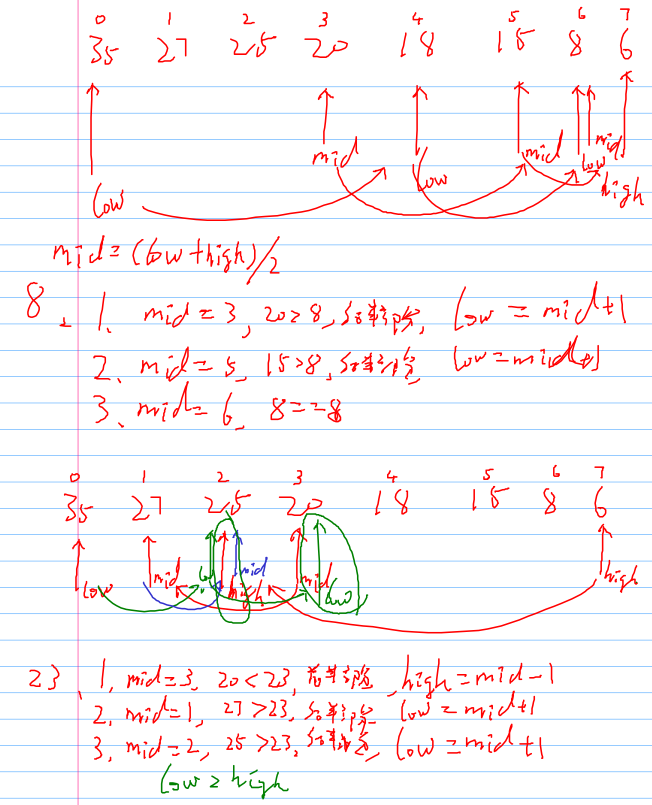 0 1 2 3 4 5 6 7
35 27 25 20 18 15 8 6
mid mid mid
low low low high
mid=(low+high)/2
8、1、mid=3, 20>8, 后半阶段, low=mid+1
2、mid=5, 15>8, 后半阶段, low=mid+1
3、mid=6, 8==8
0 1 2 3 4 5 6 7
35 27 25 20 18 15 8 6
low mid low high mid mid low high
23、1、mid=3, 20<23, 前半阶段, high=mid-1
2、mid=1, 27>23, 后半阶段, low=mid+1
3、mid=2, 25>23, 后半阶段, low=mid+1
low>high